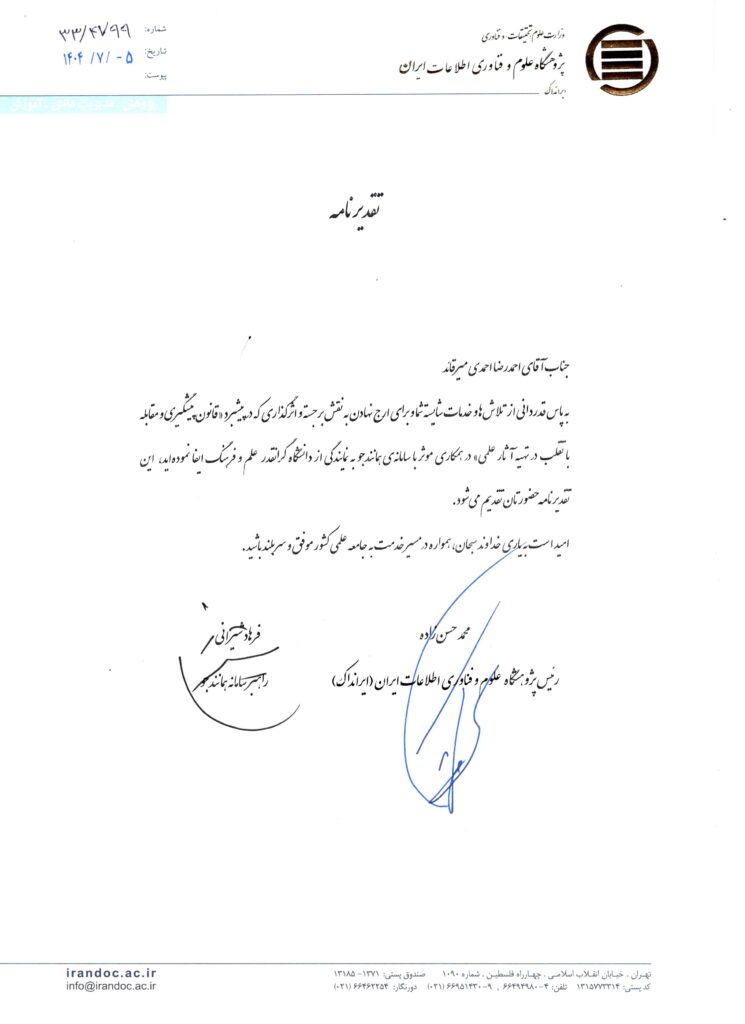 وزارت علوم، تحقیقات و فناوری
پژوهشگاه علوم و فناوری اطلاعات ایران
ایرانداک
شماره: ۳۳/۴۷۹۹
تاریخ: ۱۴۰۴/۷/۰۵
پیوست:
پژوهش . مدیریت دانش . آموزش
تقدیرنامه
جناب آقای احمدرضا احمدی میرقائد
به پاس قدردانی از تلاش‌ها و خدمات شایسته شما و برای ارج نهادن به نقش برجسته و اثرگذاری که در پیشبرد «قانون پیشگیری و مقابله
با تقلب در تهیه آثار علمی» در همکاری موثر با سامانه‌ی همانندجو به نمایندگی از دانشگاه گرانقدر علم و فرهنگ ایفا نموده‌اید، این
تقدیرنامه حضورتان تقدیم می‌شود.
امید است به یاری خداوند سبحان، همواره در مسیر خدمت به جامعه علمی کشور موفق و سربلند باشید.
محمد حسن‌زاده
رئیس پژوهشگاه علوم و فناوری اطلاعات ایران (ایرانداک)
فرهاد شیرانی
راهبر سامانه همانندجو
تهـران . خیـابان انقـلاب اسـلامـی . چهـارراه فلسطیـن . شماره ۱۰۹۰ صندوق پستی: ۱۳۷۱- ۱۳۱۸۵
کد پستی: ۱۳۱۵۷۷۳۳۱۴ تلفن: ۴-۶۶۴۹۴۹۸۰ , ۹-۶۶۹۵۱۴۳۰ (۰۲۱) دورنگار: ۶۶۴۶۲۲۵۴ (۰۲۱)
irandoc.ac.ir
info@irandoc.ac.ir